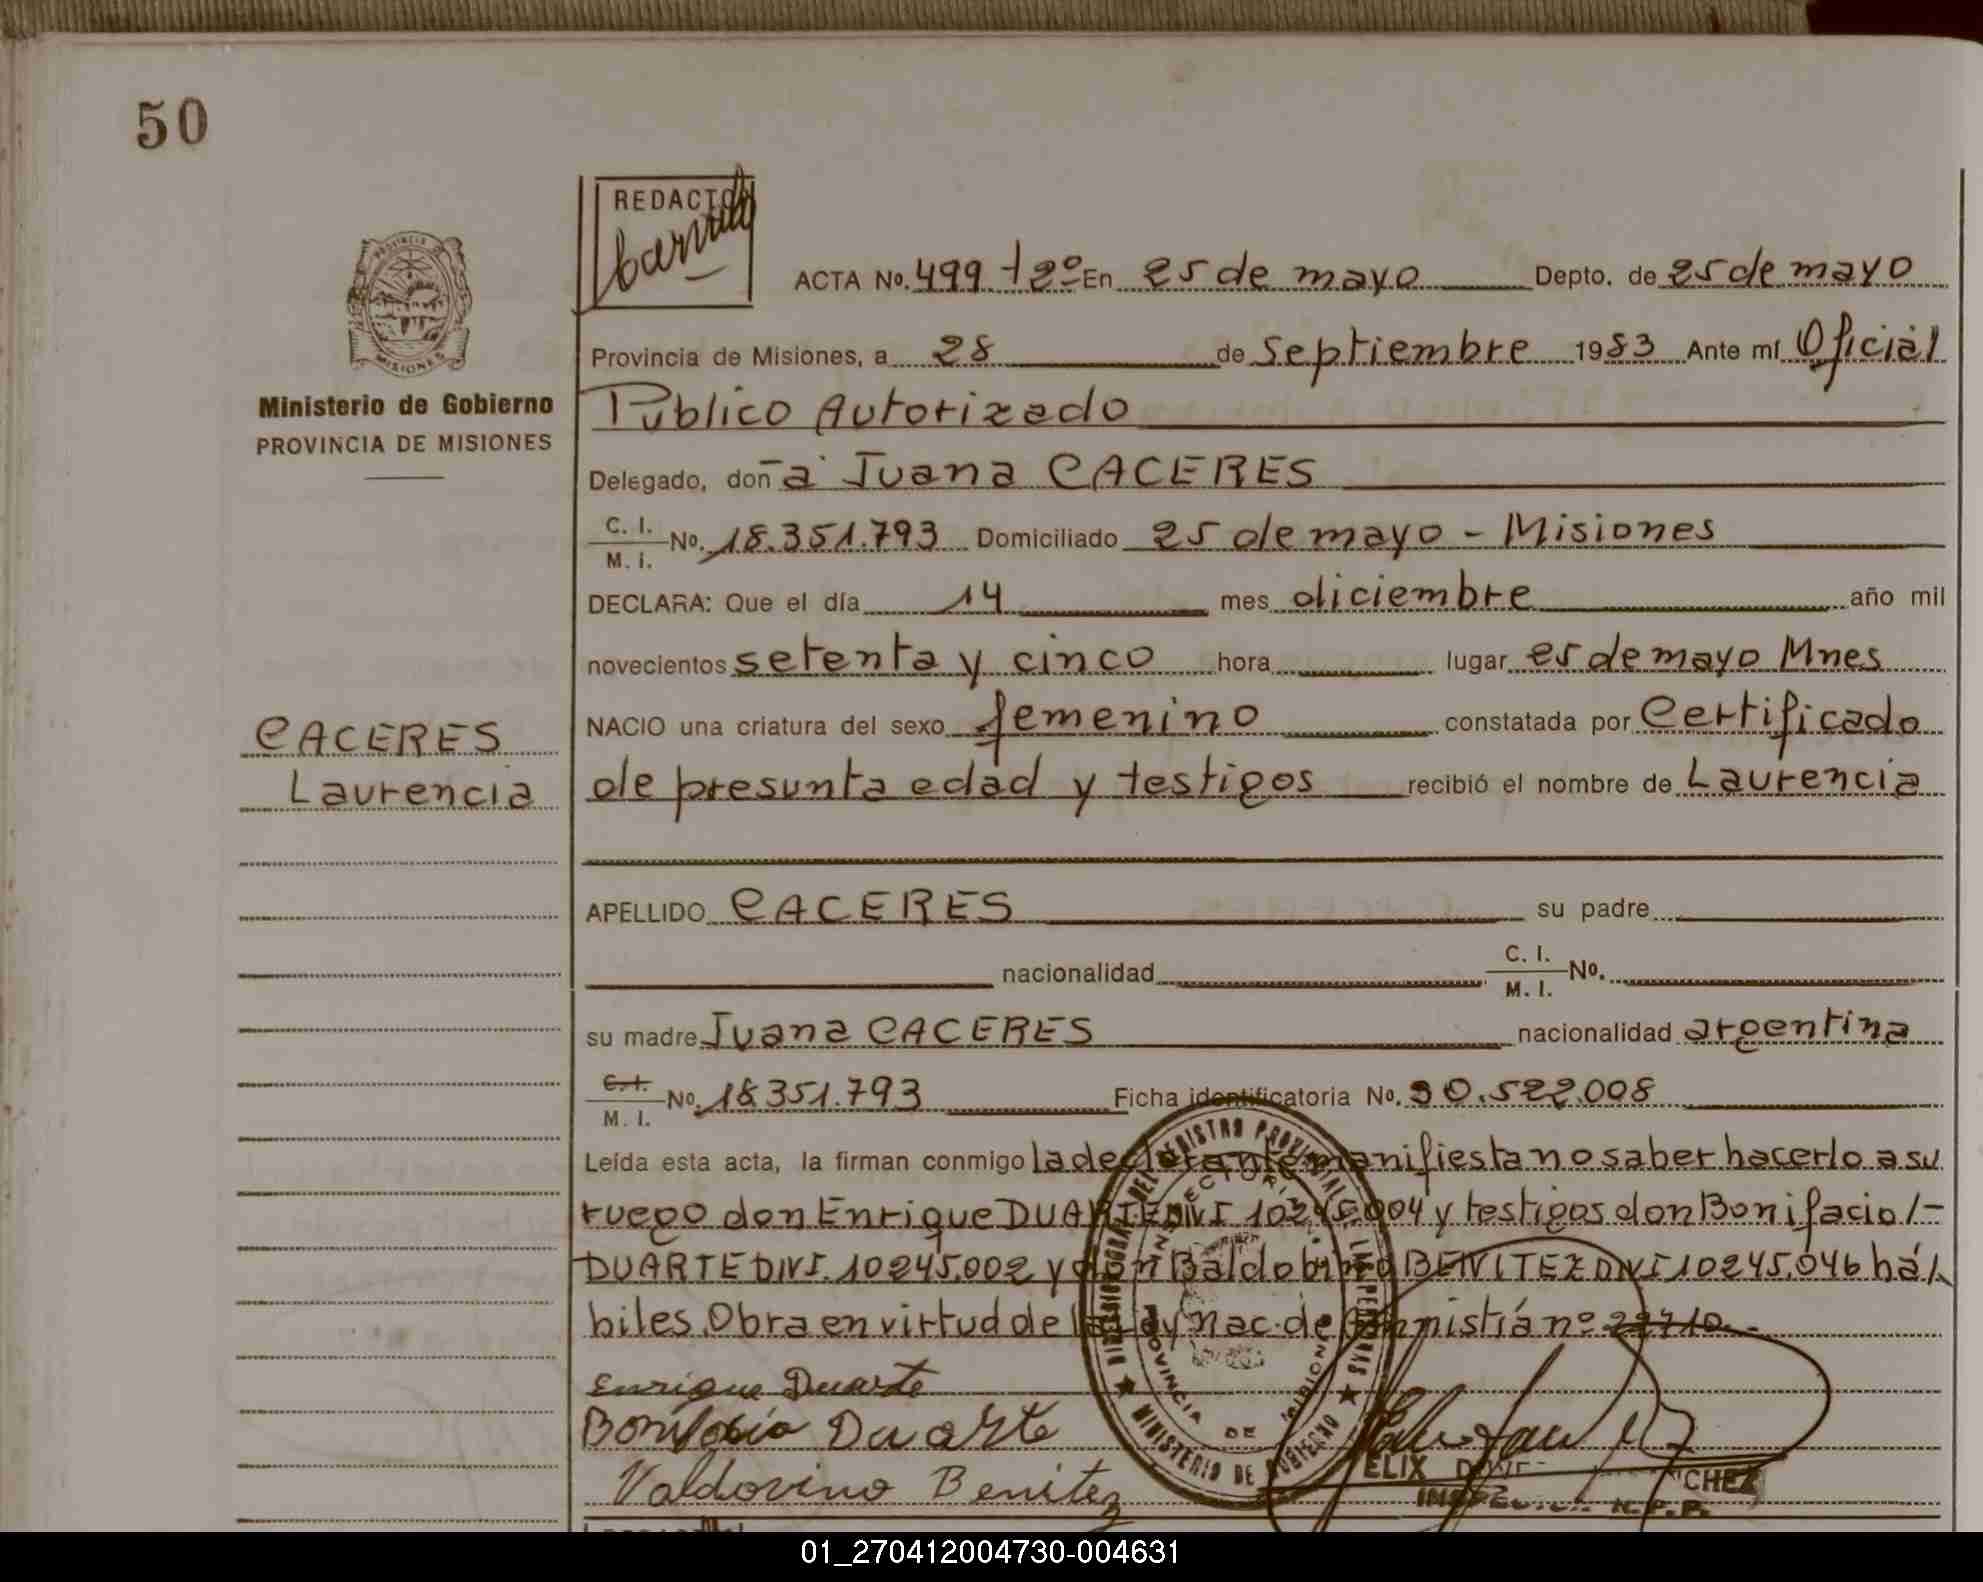 50
REDACTO
ACTA No. 499 t 2º En 25 de mayo Depto. de 25 de mayo
Provincia de Misiones, a 28 de Septiembre 1983 Ante mí Oficial
Público Autorizado
Ministerio de Gobierno
PROVINCIA DE MISIONES
Delegado, doña Juana CACERES
C. I.
M. I. No. 18.351.793 Domiciliado 25 de mayo - Misiones
DECLARA: Que el día 14 mes diciembre año mil
novecientos setenta y cinco hora lugar 25 de mayo Mnes
NACIO una criatura del sexo femenino constatada por Certificado
CACERES
Laurencia
de presunta edad y testigos recibió el nombre de Laurencia
APELLIDO CACERES su padre
nacionalidad C. I.
M. I. No.
su madre Juana CACERES nacionalidad argentina
C. I.
M. I. No. 18.351.793 Ficha identificatoria No. 30.522.008
Leída esta acta, la firman conmigo la declarante manifiesta no saber hacerlo a su
ruego don Enrique DUARTE DNI 10245.004 y testigos don Bonifacio /-
DUARTE DNI. 10245.002 y don Baldobino BENITEZ DNI 10245.046 há/.
biles. Obra en virtud de la Ley Nac. de Amnistía nº
Enrique Duarte
Bonifacio Duarte
Valdovino Benitez
PROVINCIA DE MISIONES
MINISTERIO DE GOBIERNO
ELIX
CHEZ
01_270412004730-004631